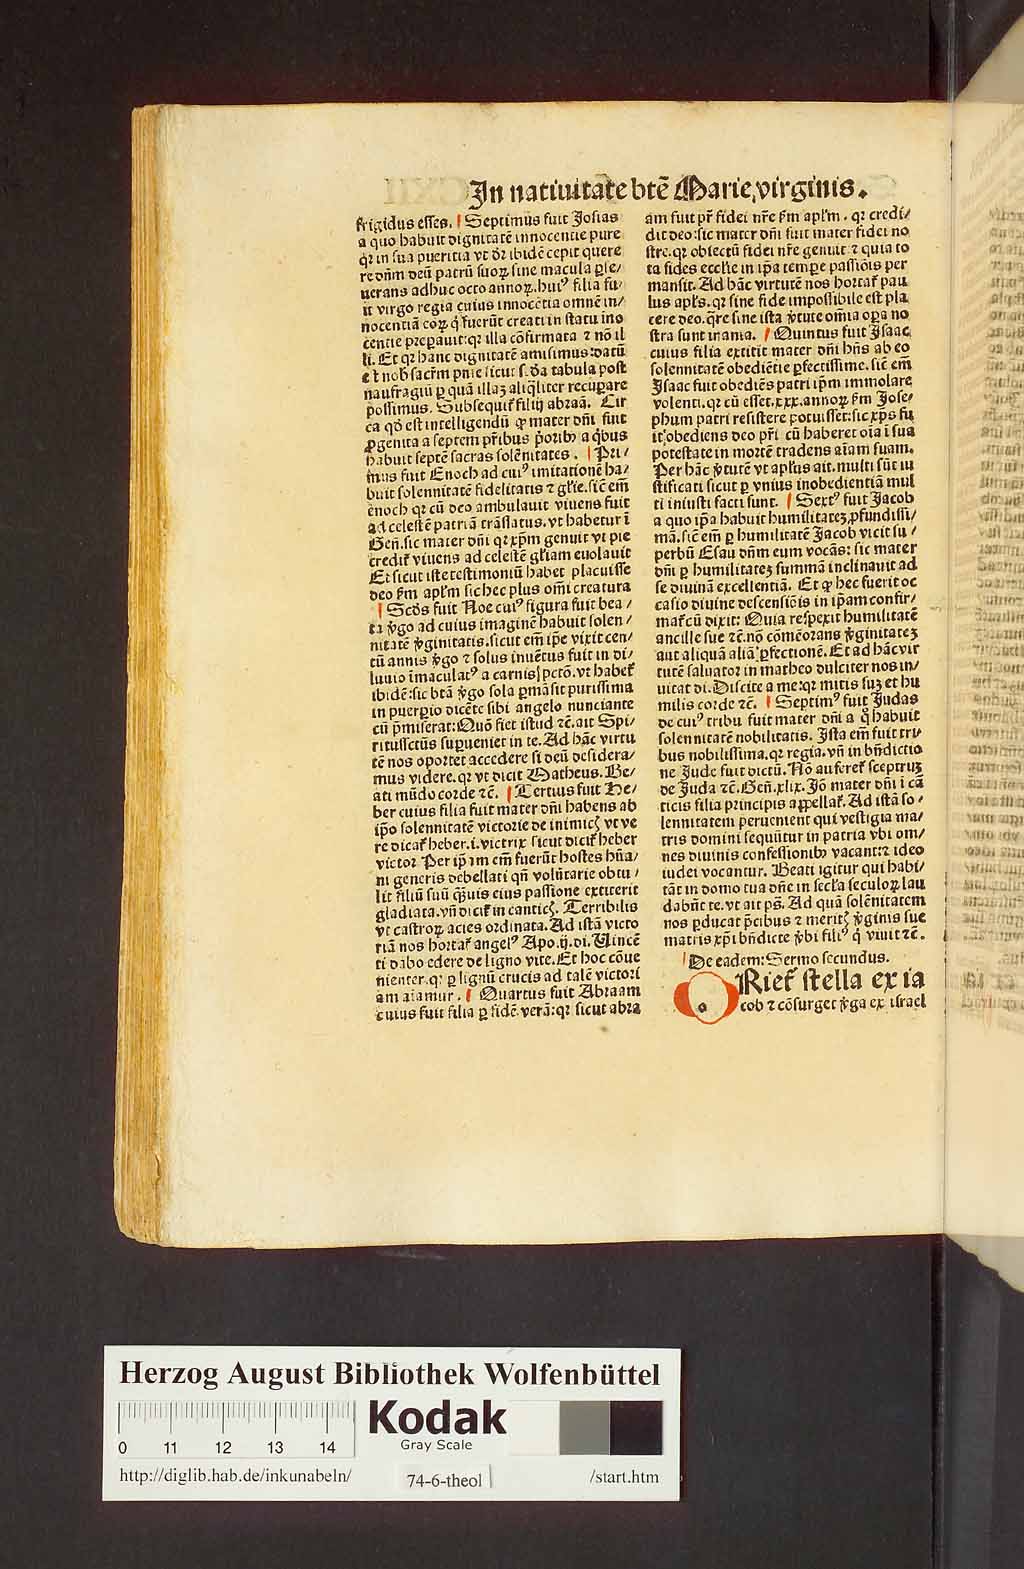 In natiuitate btē Marie virginis.
frigidus esses. Septimus fuit Josias
a quo habuit dignitatē innocentie pure
qr in sua pueritia vt dr ibidē cepit quere
re dn̄m deū patrū suoꝝ sine macula ꝑse/
uerans adhuc octo annoꝝ. huiꝰ filia fu/
it virgo regia cuius innocētia omnē in/
nocentiā coꝝ q̄ fuerūt creati in statu ino
centie preparauit: qr illa cōfirmata ⁊ nō il
li. Et qr hanc dignitatē amisimus: datū
est nob̄ sacrm̄ pnīe sicut scđa tabula post
naufragiū ꝑ quā illaʒ aliqliter recuꝑare
possimus. Subsequit̄ filij abraā. Cir
ca qđ est intelligendū ꝙ mater dn̄i fuit
ꝓgenita a septem pr̄ibus ꝑorib a qbus
habuit septē sacras solēnitates. Pri/
mus fuit Enoch ad cuiꝰ imitationē ha/
buit solennitatē fidelitatis ⁊ gr̄ie. sic em̄
enoch qr cū deo ambulauit viuens fuit
ad celestē patriā trāslatus. vt habetur ī
Gen̄. sic mater dn̄i qr xp̄m genuit vt pie
credit̄ viuens ad celestē gl̄iam euolauit
Et sicut iste testimoniū habet placuisse
deo ẜm apl̄m sic hec plus om̄i creatura
Scđs fuit Noe cuiꝰ figura fuit bea/
ta v̄go ad cuius imaginē habuit solen/
nitatē v̄ginitatis. sicut em̄ ip̄e vixit cen/
tū annis v̄go ⁊ solus inuētus fuit in di/
luuio īmaculatꝰ a carnis pctō. vt habet̄
ibidē: sic btā v̄go sola ꝑmāsit purissima
in puerꝑio dicēte sibi angelo nunciante
cū p̄miserat: Quō fiet istud ⁊c̄. ait Spi/
ritussctūs suꝑueniet in te. Ad hāc virtu
tē nos oportet accedere si deū desidera/
mus videre. qr vt dicit Matheus. Be/
ati mūdo corde ⁊c̄. Tertius fuit He/
ber cuius filia fuit mater dn̄i habens ab
ip̄o solennitatē victorie de inimicꝭ vt ve
re dicat̄ heber. i. victrix sicut dicit̄ heber
victor Per ip̄am em̄ fuerūt hostes hūa/
ni generis debellati qn̄ volūtarie obtu/
lit filiū suū q̄uis eius passione extiterit
gladiata. vn̄ dicit̄ in canticꝭ. Terribilis
vt castroꝝ acies ordinata. Ad istā victo
riā nos hortat̄ angelꝰ Apo. ij. di. Uincē
ti dabo edere de ligno vite. Et hoc cōue
nienter. qr ꝑ lignū crucis ad talē victori
am aīamur. Quartus fuit Abraam
cuius fuit filia ꝑ fidē verā: qr sicut abra
am fuit pr̄ fidei nr̄e ẜm apl̄m. qr credi/
dit deo: sic mater dn̄i fuit mater fidei no
stre. qr obiectū fidei nr̄e genuit ⁊ quia to
ta fides eccl̄ie in ip̄a tempe passiōis per
mansit. Ad hāc virtutē nos hortat̄ pau
lus apl̄s. qr sine fide impossibile est pla
cere deo. q̄re sine ista v̄tute om̄ia oꝑa no
stra sunt inania. Quintus fuit Isaac
cuius filia extitit mater dn̄i hn̄s ab eo
solennitatē obediētie ꝑfectissime. sic em̄
Isaac fuit obediēs patri ip̄m immolare
volenti. qr cū esset. xxx. annoꝝ ẜm Jose/
phum patri resistere potuisset: sic xp̄s fu
it obediens deo pr̄i cū haberet oīa ī sua
potestate in mortē tradens aīam suam.
Per hāc v̄tutē vt apl̄us ait. multi sūt iu
stificati sicut ꝑ vnius inobedientiā mul
ti iniusti facti sunt. Sextꝰ fuit Jacob
a quo ip̄a habuit humilitateʒ ꝓfundissi/
mā. sic em̄ ꝑ humilitatē Jacob vicit su/
perbū Esau dn̄m eum vocās: sic mater
dn̄i ꝑ humilitateʒ summā inclinauit ad
se diuinā excellentiā. Et ꝙ hec fuerit oc
casio diuine descensiōis in ip̄am confir/
mat̄ cū dixit: Quia respexit humilitatē
ancille sue ⁊c̄. nō cōmēorans v̄ginitateʒ
aut aliquā aliā ꝑfectionē. Et ad hāc vir
tutē saluator in matheo dulciter nos in/
uitat di. Discite a me: qr mitis suʒ et hu
milis corde ⁊c̄. Septimꝰ fuit Judas
de cuiꝰ tribu fuit mater dn̄i a q̊ habuit
solennitatē nobilitatis. Ista em̄ fuit tri/
bus nobilissima. qr regia. vn̄ in bn̄dictio
ne Jude fuit dictū. Nō auferet̄ sceptruʒ
de Juda ⁊c̄. Gen̄. xlix. Jō mater dn̄i ī cā
ticis filia principis appellat̄. Ad istā so/
lennitatem perueniunt qui vestigia ma/
tris domini sequūtur in patria vbi om/
nes diuinis confessionib vacant: ⁊ ideo
iudei vocantur. Beati igitur qui habi/
tāt in domo tua dn̄e in secl̄a seculoꝝ lau
dabūt te. vt ait ps̄. Ad quā solēnitatem
nos ꝑducat p̄cibus ⁊ meritꝭ v̄ginis sue
matris xp̄i bn̄dicte v̄bi filiꝰ q̄ viuit ⁊c̄.
De eadem: Sermo secundus.
ORiet̄ stella ex ia
cob ⁊ cōsurget v̄ga ex israel
Herzog August Bibliothek Wolfenbüttel
0 11 12 13 14
Kodak
Gray Scale
http://diglib.hab.de/inkunabeln/ 74-6-theol /start.htm